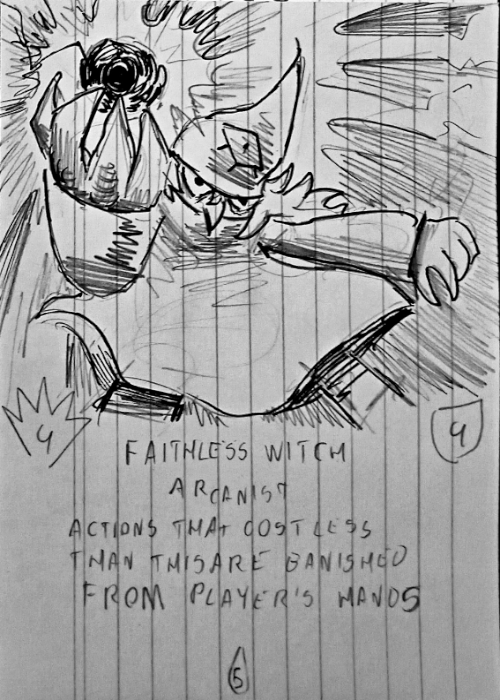 4
4
FAITHLESS WITCH
ARCANIST
ACTIONS THAT COST LESS
THAN THIS ARE BANISHED
FROM PLAYER'S HANDS
5